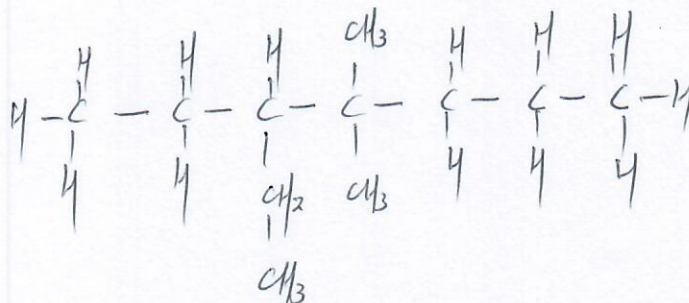 H H H CH3 H H H
H - C - C - C - C - C - C - C - H
H H CH2 CH3 H H H
CH3